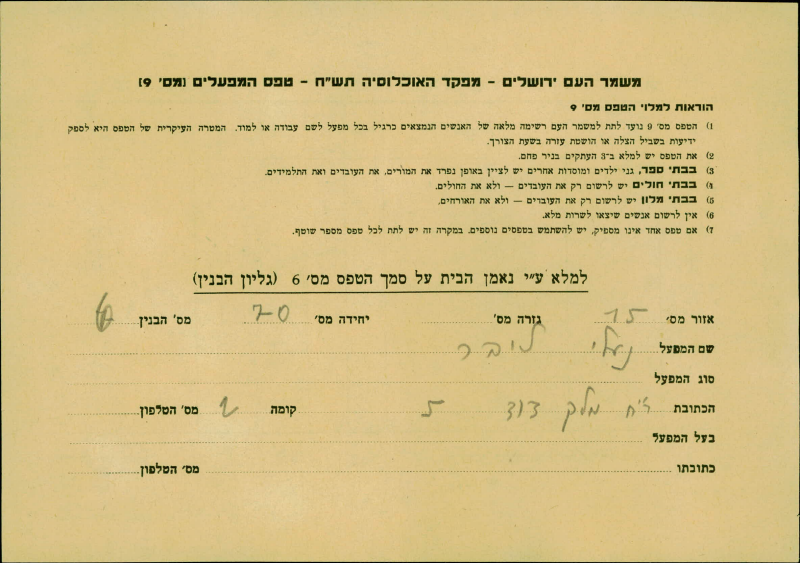 משמר העם ירושלים – מפקד האוכלוסיה תש"ח – טפס המפעלים [מס' 9]
הוראות למלוי הטפס מס' 9
1) הטפס מס' 9 נועד לתת למשמר העם רשימה מלאה של האנשים הנמצאים כרגיל בכל מפעל לשם עבודה או למוד. המטרה העיקרית של הטפס היא לספק
ידיעות בשביל הצלה או הושטת עזרה בשעת הצורך.
2) את הטפס יש למלא ב־3 העתקים בניר פחם.
3) בבתי ספר, גני ילדים ומוסדות אחרים יש לציין באופן נפרד את המורים, את העובדים ואת התלמידים.
4) בבתי חולים יש לרשום רק את העובדים — ולא את החולים.
5) בבתי מלון יש לרשום רק את העובדים — ולא את האורחים.
6) אין לרשום אנשים שיצאו לשרות מלא.
7) אם טפס אחד אינו מספיק, יש להשתמש בטפסים נוספים. במקרה זה יש לתת לכל טפס מספר שוטף.
למלא ע"י נאמן הבית על סמך הטפס מס' 6 (גליון הבנין)
אזור מס' 15 גזרה מס' יחידה מס' 70 מס' הבנין
שם המפעל נעלי ליבר
סוג המפעל
הכתובת רח' מלק דוד 5 קומה 2 מס' הטלפון
בעל המפעל
כתובתו מס' הטלפון